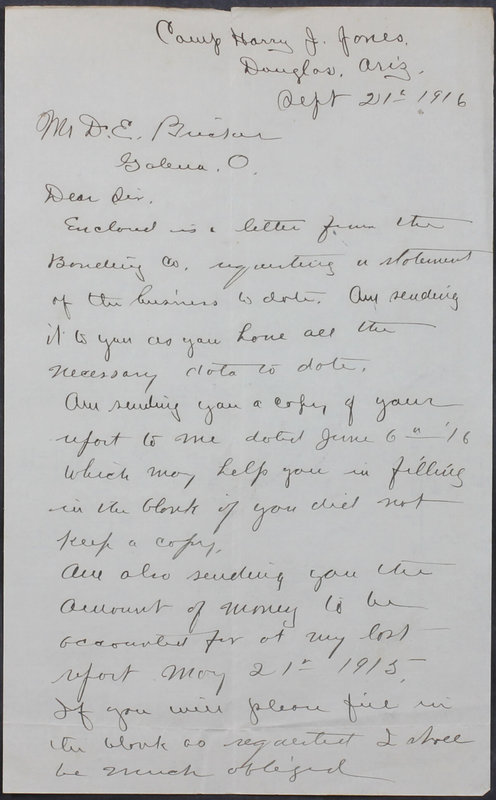 Camp Harry J. Jones.
Douglas, Ariz.
Sept 21st 1916
Mr D. E.
Galena, O.
Dear Sir.
Enclosed is a letter from the
Bonding Co. requesting a statement
of the business to date. Am sending
it to you as you have all the
necessary data to date.
Am sending you a copy of your
report to me dated June 6th '16
which may help you in filling
in the blank if you did not
keep a copy.
Am also sending you the
amount of money to be
accounted for at my last
report May 21st 1915.
If you will please fill in
the blank as requested I shall
be much obliged